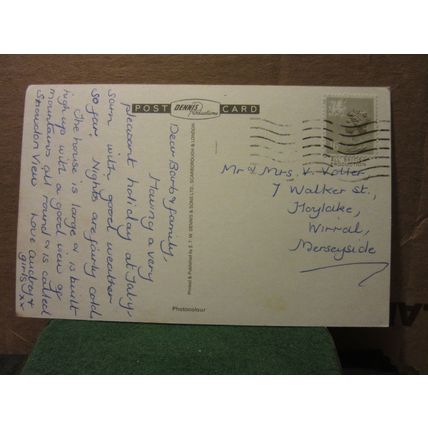 POST DENNIS Productions CARD
Dear Barb & family,
Having a very
pleasant holiday at Taly-
sarn with good weather
so far. Nights are fairly cold.
The house is large & is built
high up with a good view of
mountains all round & is called
Snowdon View
love Audrey &
girls xx
Printed & Published by E. T. W. DENNIS & SONS LTD., SCARBOROUGH & LONDON
Photocolour
Mr & Mrs. K. Volter
7 Walker St.,
Hoylake,
Wirral,
Merseyside